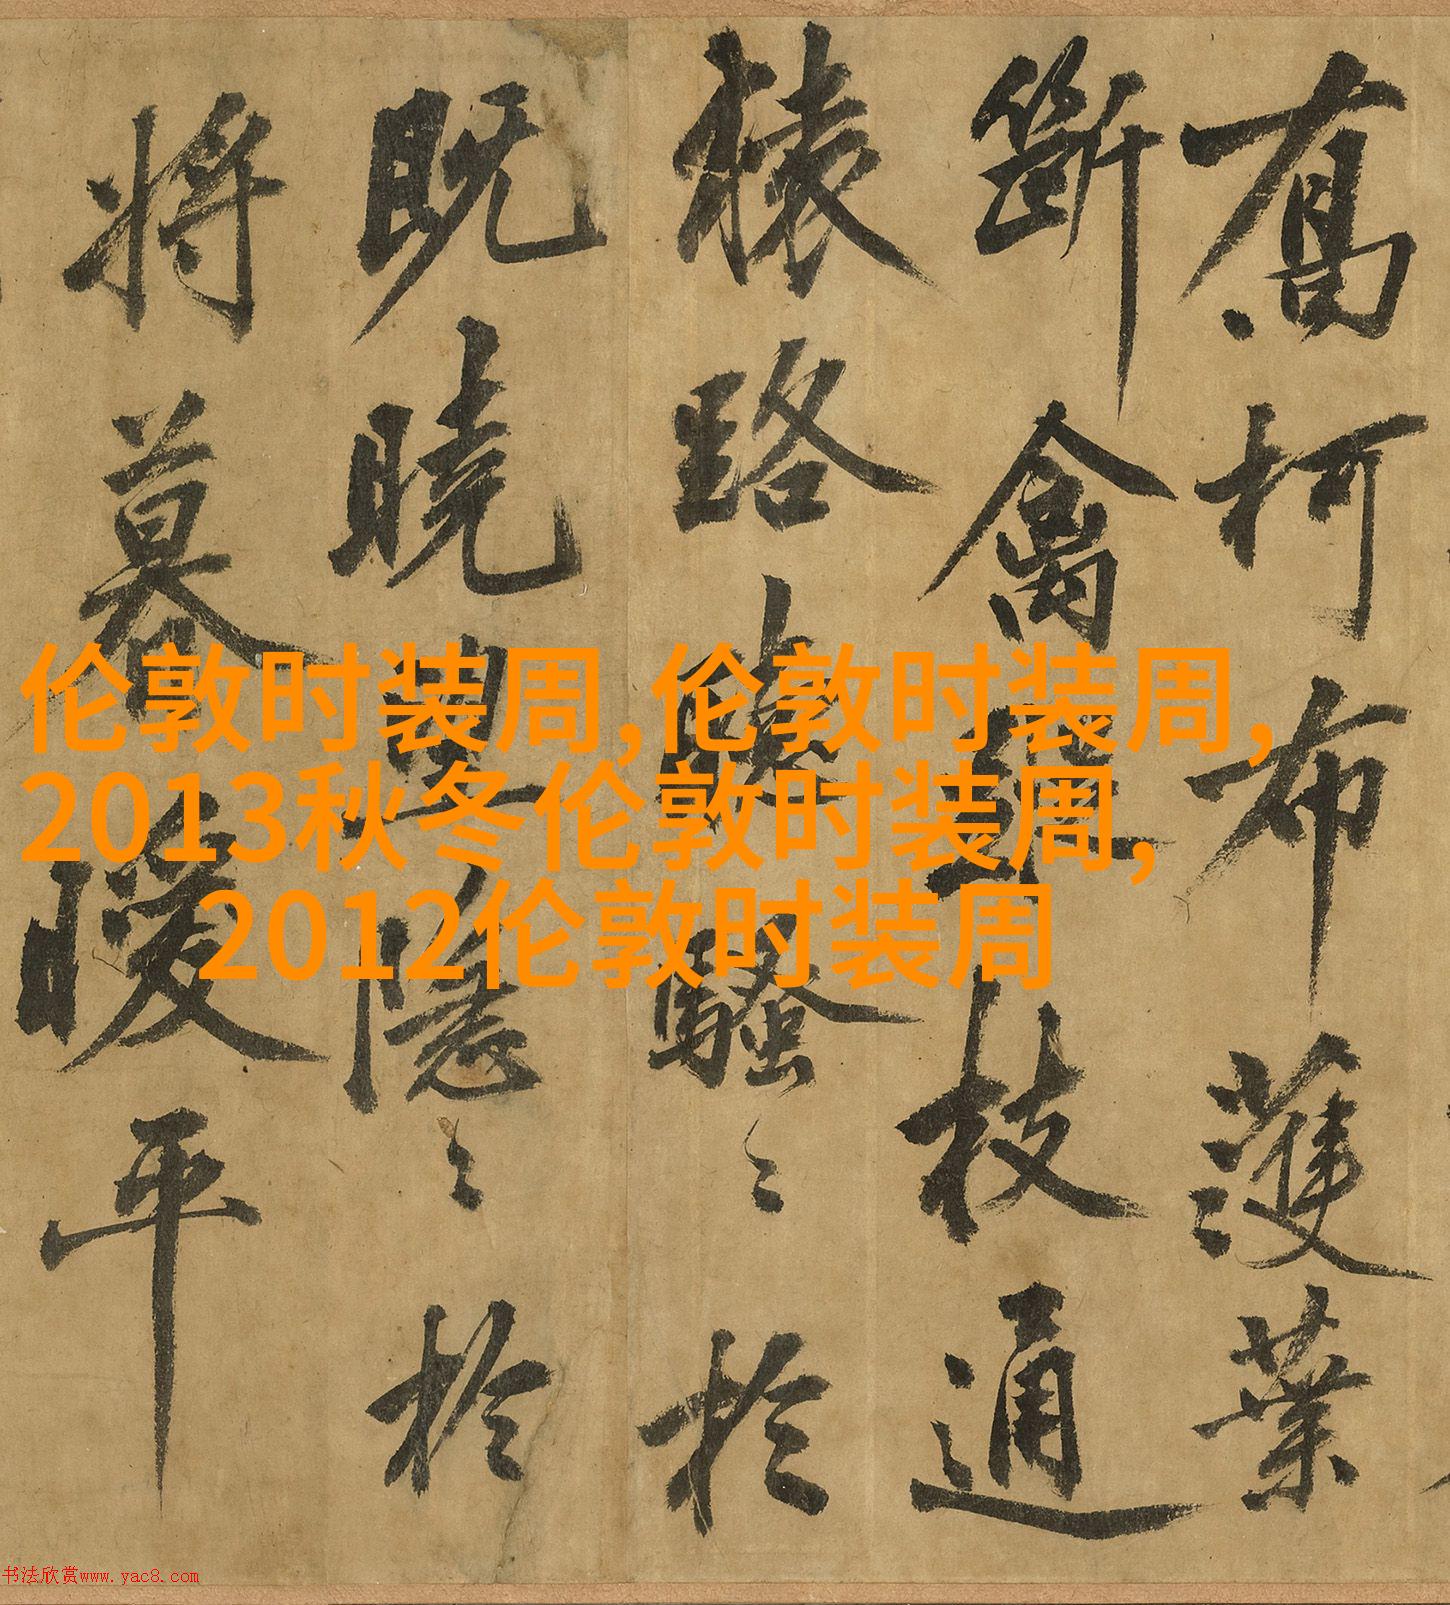 喬柯布濩葉
斷禽枝通
猿路聽騷〻於
既曉望隱〻於
將暮曖平
伦敦时装周,伦敦时装周,
2013秋冬伦敦时装周,
2012伦敦时装周
书法欣赏www.yac8.com